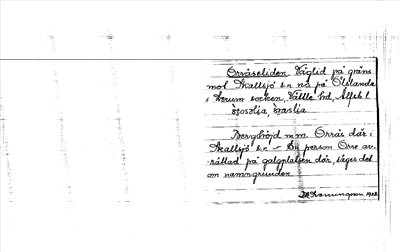 Orråseliden. Väglid på gräns
mot Skallsjö sn no på Ölslanda
i Lerum socken, Vättle hd, Älfsb. l.
Berghöjd m m Orrås där i
Skallsjö sn – En person Orre av-
rättad på galgplatsen där, säges det
om namngrunden.